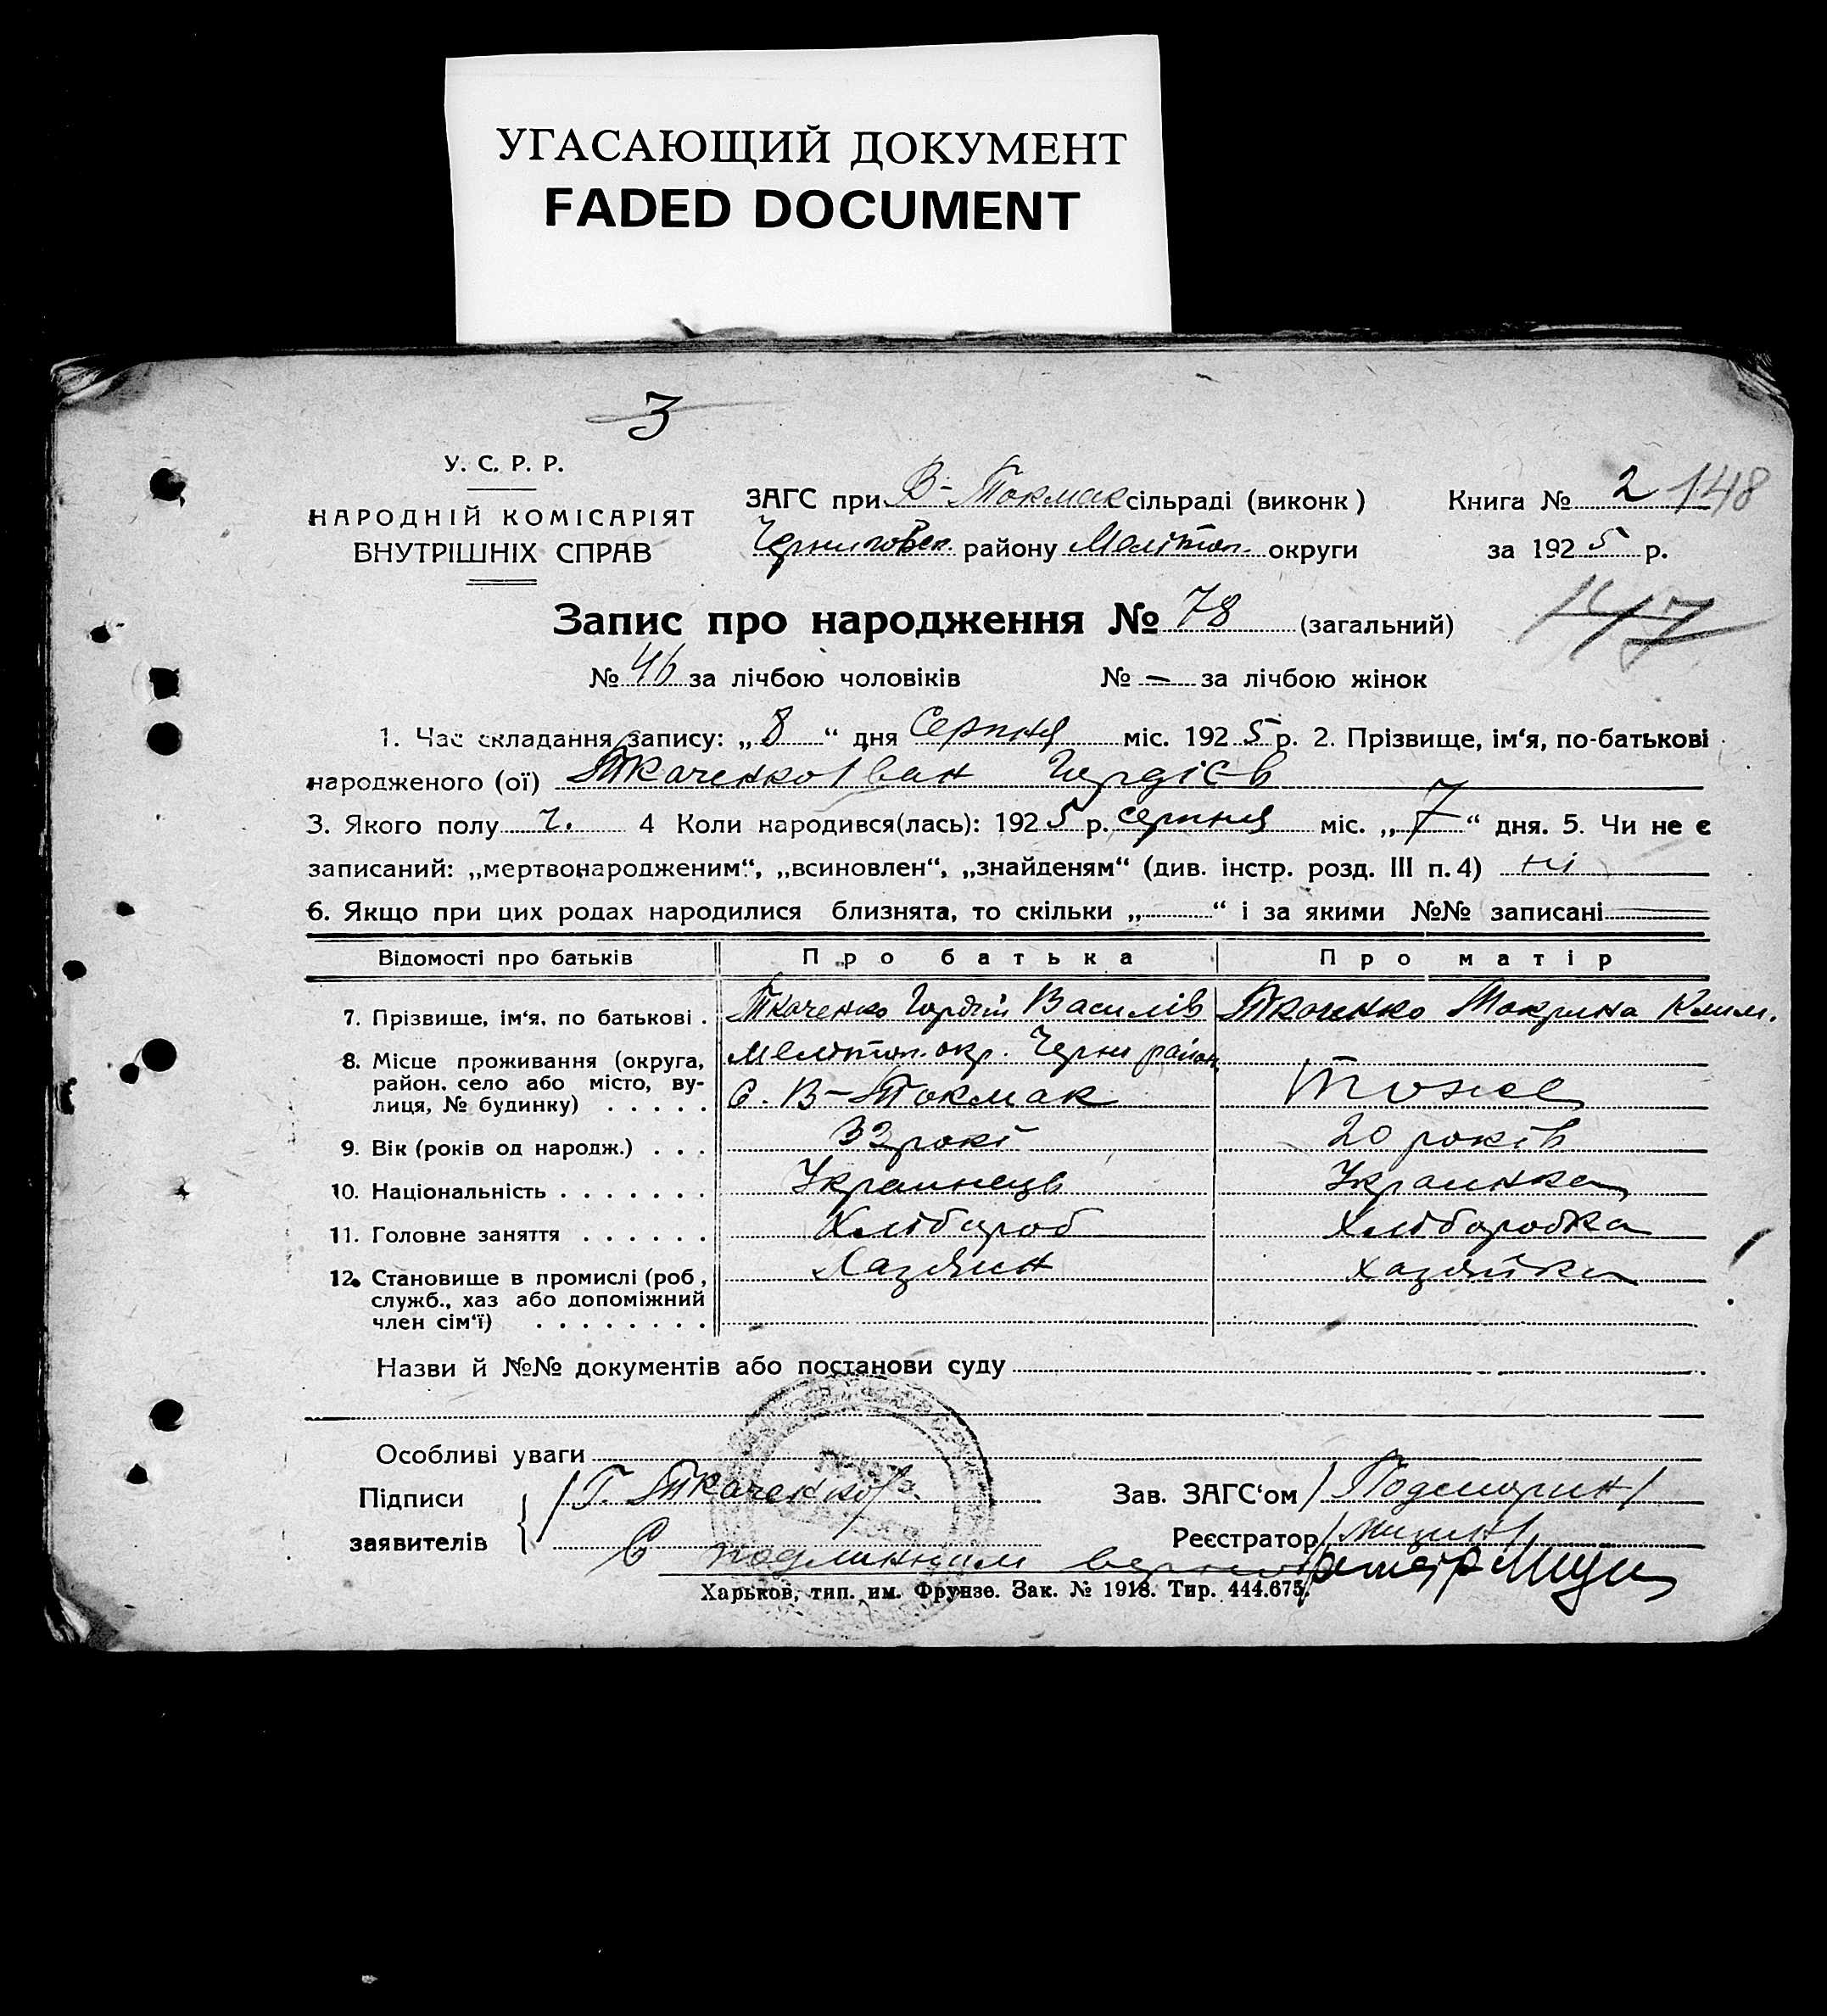 УГАСАЮЩИЙ ДОКУМЕНТ
FADED DOCUMENT
3
У. С. Р. Р.
НАРОДНІЙ КОМІСАРІЯТ
ВНУТРІШНІХ СПРАВ
ЗАГС при В-Токмак сільраді (виконк)
Черниговск. району Меліточ. округи
Книга № 2 148
за 1925 р.
Запис про народження № 78 (загальний)
147
№ 46 за лічбою чоловіків № — за лічбою жінок
1. Час складання запису: „8“ дня Серпня міс. 1925 р. 2. Прізвище, ім‘я, по-батькові
народженого (ої) Ткаченко Іван Гордієв
3. Якого полу ч. 4 Коли народився(лась): 1925 р. серпня міс. „7“ дня. 5. Чи не є
записаний: „мертвонародженим“, „всиновлен“, „знайденям“ (див. інстр. розд. III п. 4) ні
6. Якщо при цих родах народилися близнята, то скільки „ “ і за якими №№ записані
Відомості про батьків Про батька Про матір
7. Прізвище, ім‘я, по батькові . Ткаченко Гордій Василів Ткаченко Мокрина Клим.
8. Місце проживання (округа, район, село або місто, ву-
лиця, № будинку) . . . . . Меліток. окр. Черни район
С. В-Токмак Тоже
9. Вік (років од народж.) . . . 33 рокі 20 років
10. Національність . . . . . . . Украинець Украинка
11. Головне заняття . . . . . . Хлібороб Хліборобка
12. Становище в промислі (роб., Хазяин хазяйка
служб., хаз або допоміжний
член сім‘ї) . . . . . . . .
Назви й №№ документів або постанови суду
Особливі уваги
Підписи
заявителів
/Г. Ткаченко/
Зав. ЗАГС‘ом
Реєстратор
С подлинним верно
Харьков, тип. им. Фрунзе. Зак. № 1918. Тир. 444.675.